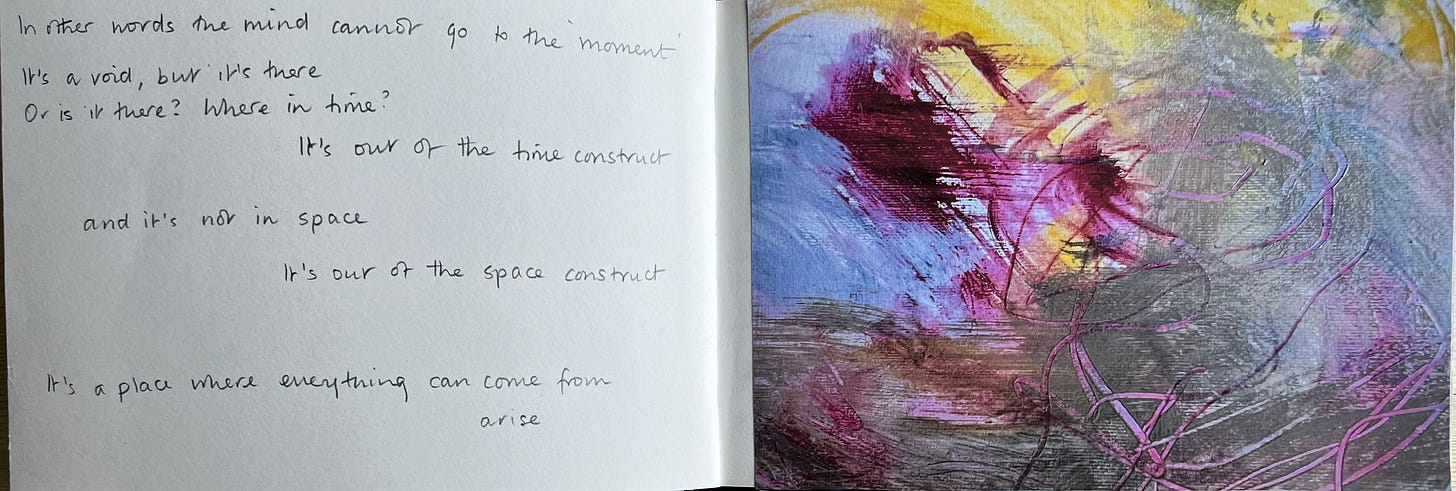 In other words the mind cannot go to the 'moment'
It's a void, but it's there
Or is it there? Where in time?
It's out of the time construct
and it's not in space
It's out of the space construct
It's a place where everything can come from
arise